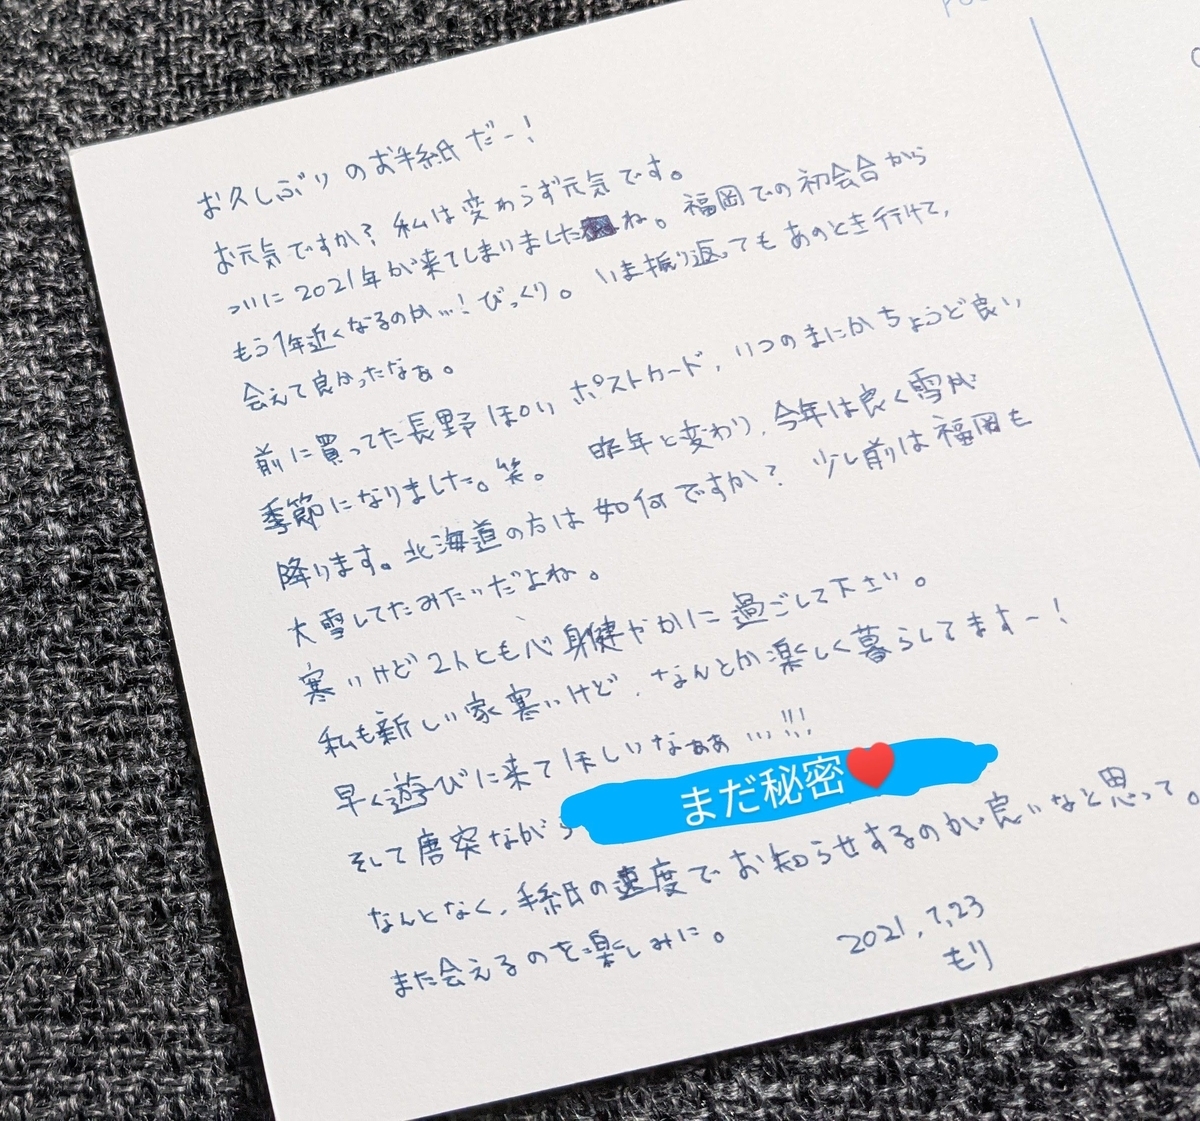 お久しぶりのお手紙だー!
お元気ですか? 私は変わらず元気です。
ついに2021年が来てしまいましたね。福岡での初会合から
もう1年近くなるのか…!びっくり。いま振り返ってもあのとき行けて、
会えて良かったなぁ。
前に買ってた長野ぽいポストカード、いつのまにかちょうど良い
季節になりました。笑。 昨年と変わり、今年は良く雪が
降ります。北海道の方は如何ですか? 少し前は福岡も
大雪してたみたいだよね。
寒いけど2人とも心身健やかに過ごして下さい。
私も新しい家寒いけど、なんとか楽しく暮らしてますー!
早く遊びに来てほしいなぁぁ…!!!
そして唐突ながら まだ秘密❤️
なんとなく、手紙の速度でお知らせするのが良いなと思って。
また会えるのを楽しみに。
2021.1.23
もり